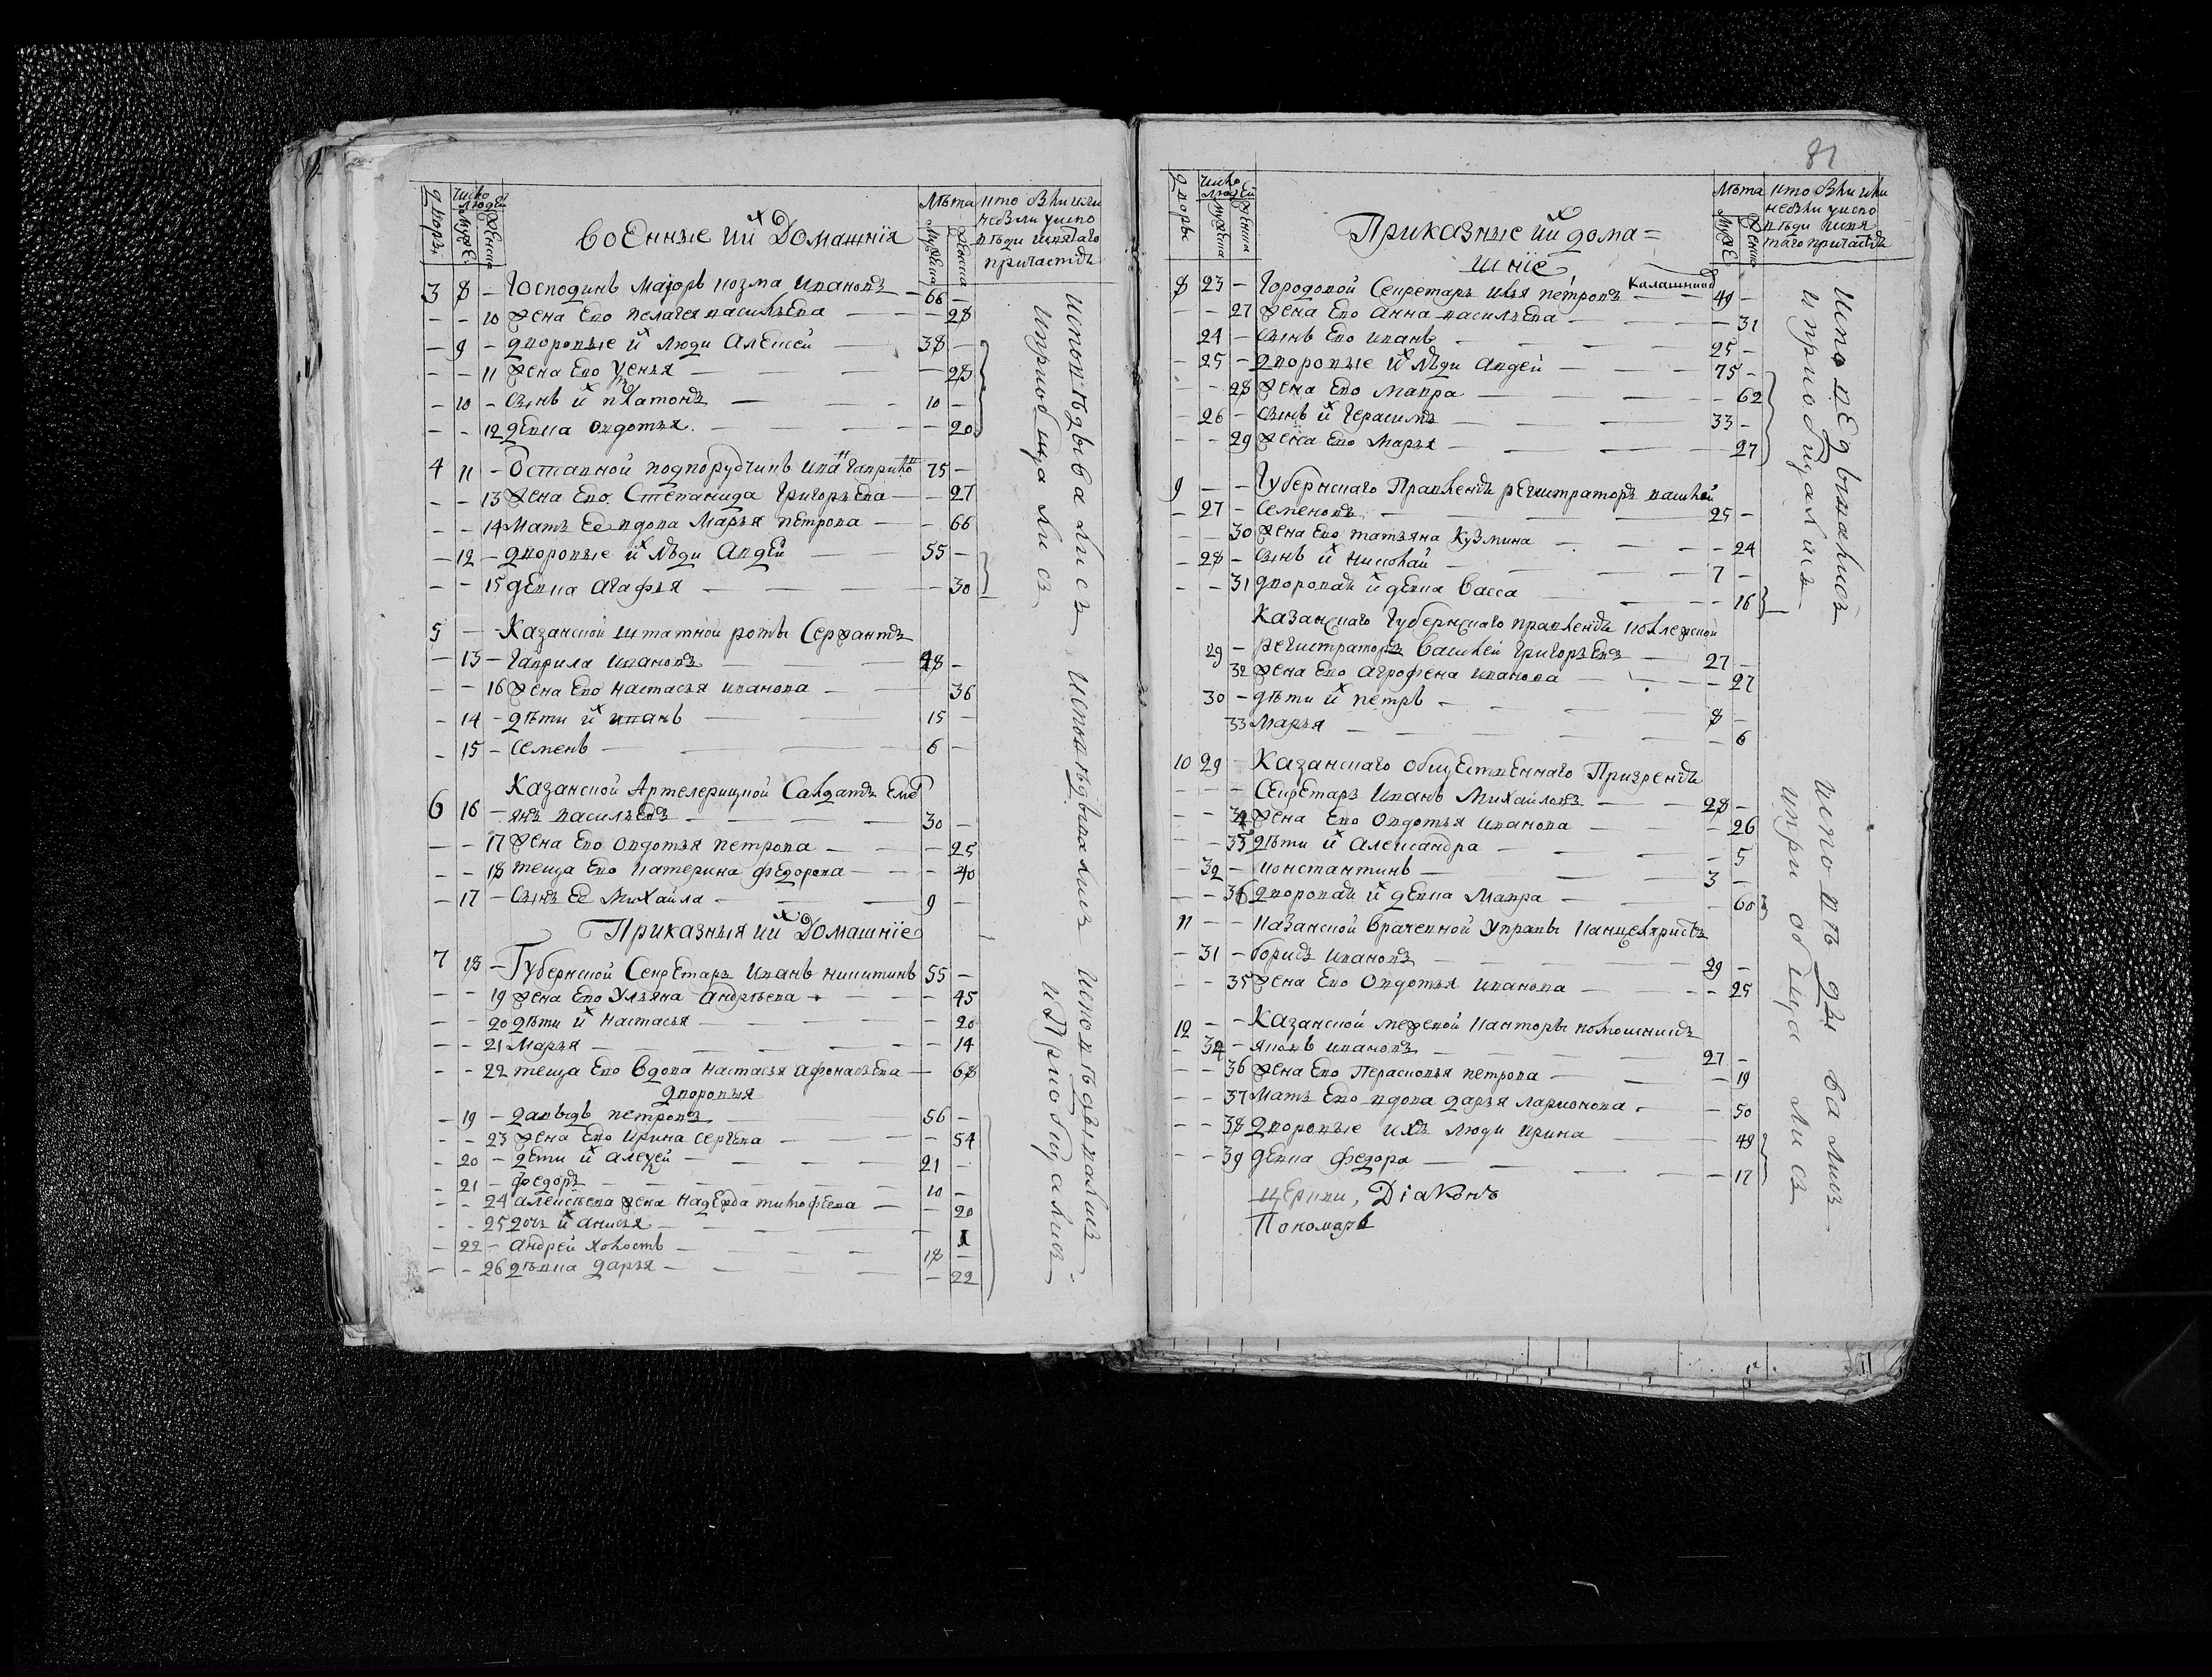 Дворы
Число людей
Мужес
Женска
Военные и иˣ Домашнїя
Лѣта
Мужеска
Женска
кто были или
не были у испо
вѣди и святаго
причастїя
3 8 – Господинъ Маіоръ козма Ивановъ – 66 –
– – 10 жена Ево пелагея васильЕва – – 28
– 9 – дворовые иˣ люди АлеѯЕй – 38 –
– – 11 жена Ево Уснья – – 28
– 10 – сынъ иˣ платонъ – 10 –
– – 12 девка овдотья – – 20
4 11 – Оставной подпорудчикъ Ива Гаврило 75 –
– – 13 жена Ево Степанида ГригорьЕва – – 27
– – 14 Мать Ее вдова Марья пЕтрова – – 66
– 12 – дворовые иˣ лѣди АвдЕй – 55 –
– – 15 дЕвка агафья – – 30
5 – – Казанской штатной роты Сержантъ
– 13 – Гаврила Ивановъ – 48 –
– – 16 жена Ево настасья иванова – – 36
– 14 – дѣти иˣ иванъ – 15 –
– 15 – семенъ – 6 –
Казанской Артелерицкой Салдатъ Еме
6 16 – янъ васильЕвъ – 30 –
– – 17 жена Ево овдотья петрова – – 25
– – 18 теща Ево катерина фЕдорова – – 40
– 17 – сынъ Ее Михайла – 9 –
Приказныя и иˣ Домашнїе
7 18 – Губернской СекрЕтарь Иванъ никитинъ 55 –
– – 19 жена Ево Ульяна андрѣева – – 45
– – 20 дѣти иˣ настасья – – 20
– – 21 Марья – – 14
– – 22 теща Ево вдова настасья афонасьЕва – 68
дворовыя
– 19 – давыдъ петровъ – 56 –
– – 23 жена Ево ирина сергѣва – – 54
– 20 – дети иˣ алеѯей – 21 –
– 21 – федоръ – 10 –
– – 24 алексѣева жена надЕжда тимофЕева – – 20
– – 25 дочь иˣ анисья – – 1
– 22 – андрей холостъ – 18 –
– – 26 дѣвка дарья – – 22
исповѣдывались
и приобщались
исповѣдывались
исповѣдывались
и приобщались
81
Дворы
Число людей
Мужеска
Женска
Приказные и иˣ дома=
шнїе
Лѣта
Муже
Женска
кто были или
не были у испо
вѣди и свя
таго причастїя
8 23 – Городовой Секретарь Илья петровъ Калашников 49 –
– – 27 жена Ево Анна васильЕва – – 31
24 – сынъ Ево иванъ – 25 –
– 25 – дворовые иˣ лѣди Авдей – 75 –
– – 28 жена Ево мавра – – 62
– 26 – сынъ иˣ герасимъ – 33 –
– – 29 жена Ево марья – – 27
9 – – Губернскаго Правленїя рЕгистраторъ василей
– 27 – семеновъ – 25 –
– – 30 жена Ево татьяна Кузмина – – 24
– 28 – сынъ иˣ николай – 7 –
– – 31 дворовая иˣ дЕвка васса – – 16
Казанскаго Губернскаго правленїя коллежской
29 – регистраторъ василей григорьЕвъ – 27 –
32 жена Ево агрофена иванова – – 27
30 – дѣти иˣ петръ – 8 –
33 марья – – 6
10 29 – Казанскаго общЕственнаго Призренїя
– – – СекрЕтарь Иванъ Михайловъ – 28 –
– – 34 жена Ево овдотья иванова – – 26
– – 35 дѣти иˣ александра – – 5
– 32 – константинъ – 3 –
– – 36 дворовая иˣ дЕвка мавра – – 60
11 – – казанской врачевной управы канцеляристъ
– 31 – борисъ ивановъ – 29 –
– – 35 жена Ево Овдотья иванова – – 25
12 – – Казанской межевой канторы помошникъ
– 34 – яковъ ивановъ – 27 –
– – 36 жена Ево Парасковья петрова – – 19
– – 37 мать Ево вдова дарья ларионова – – 50
– – 38 дворовые ихъ люди ирина – – 48
– – 39 дЕвка федора – – 17
церкви, Діаконъ
Пономарь
исповедывались
и приобщались
исповѣдывались
и приобщались